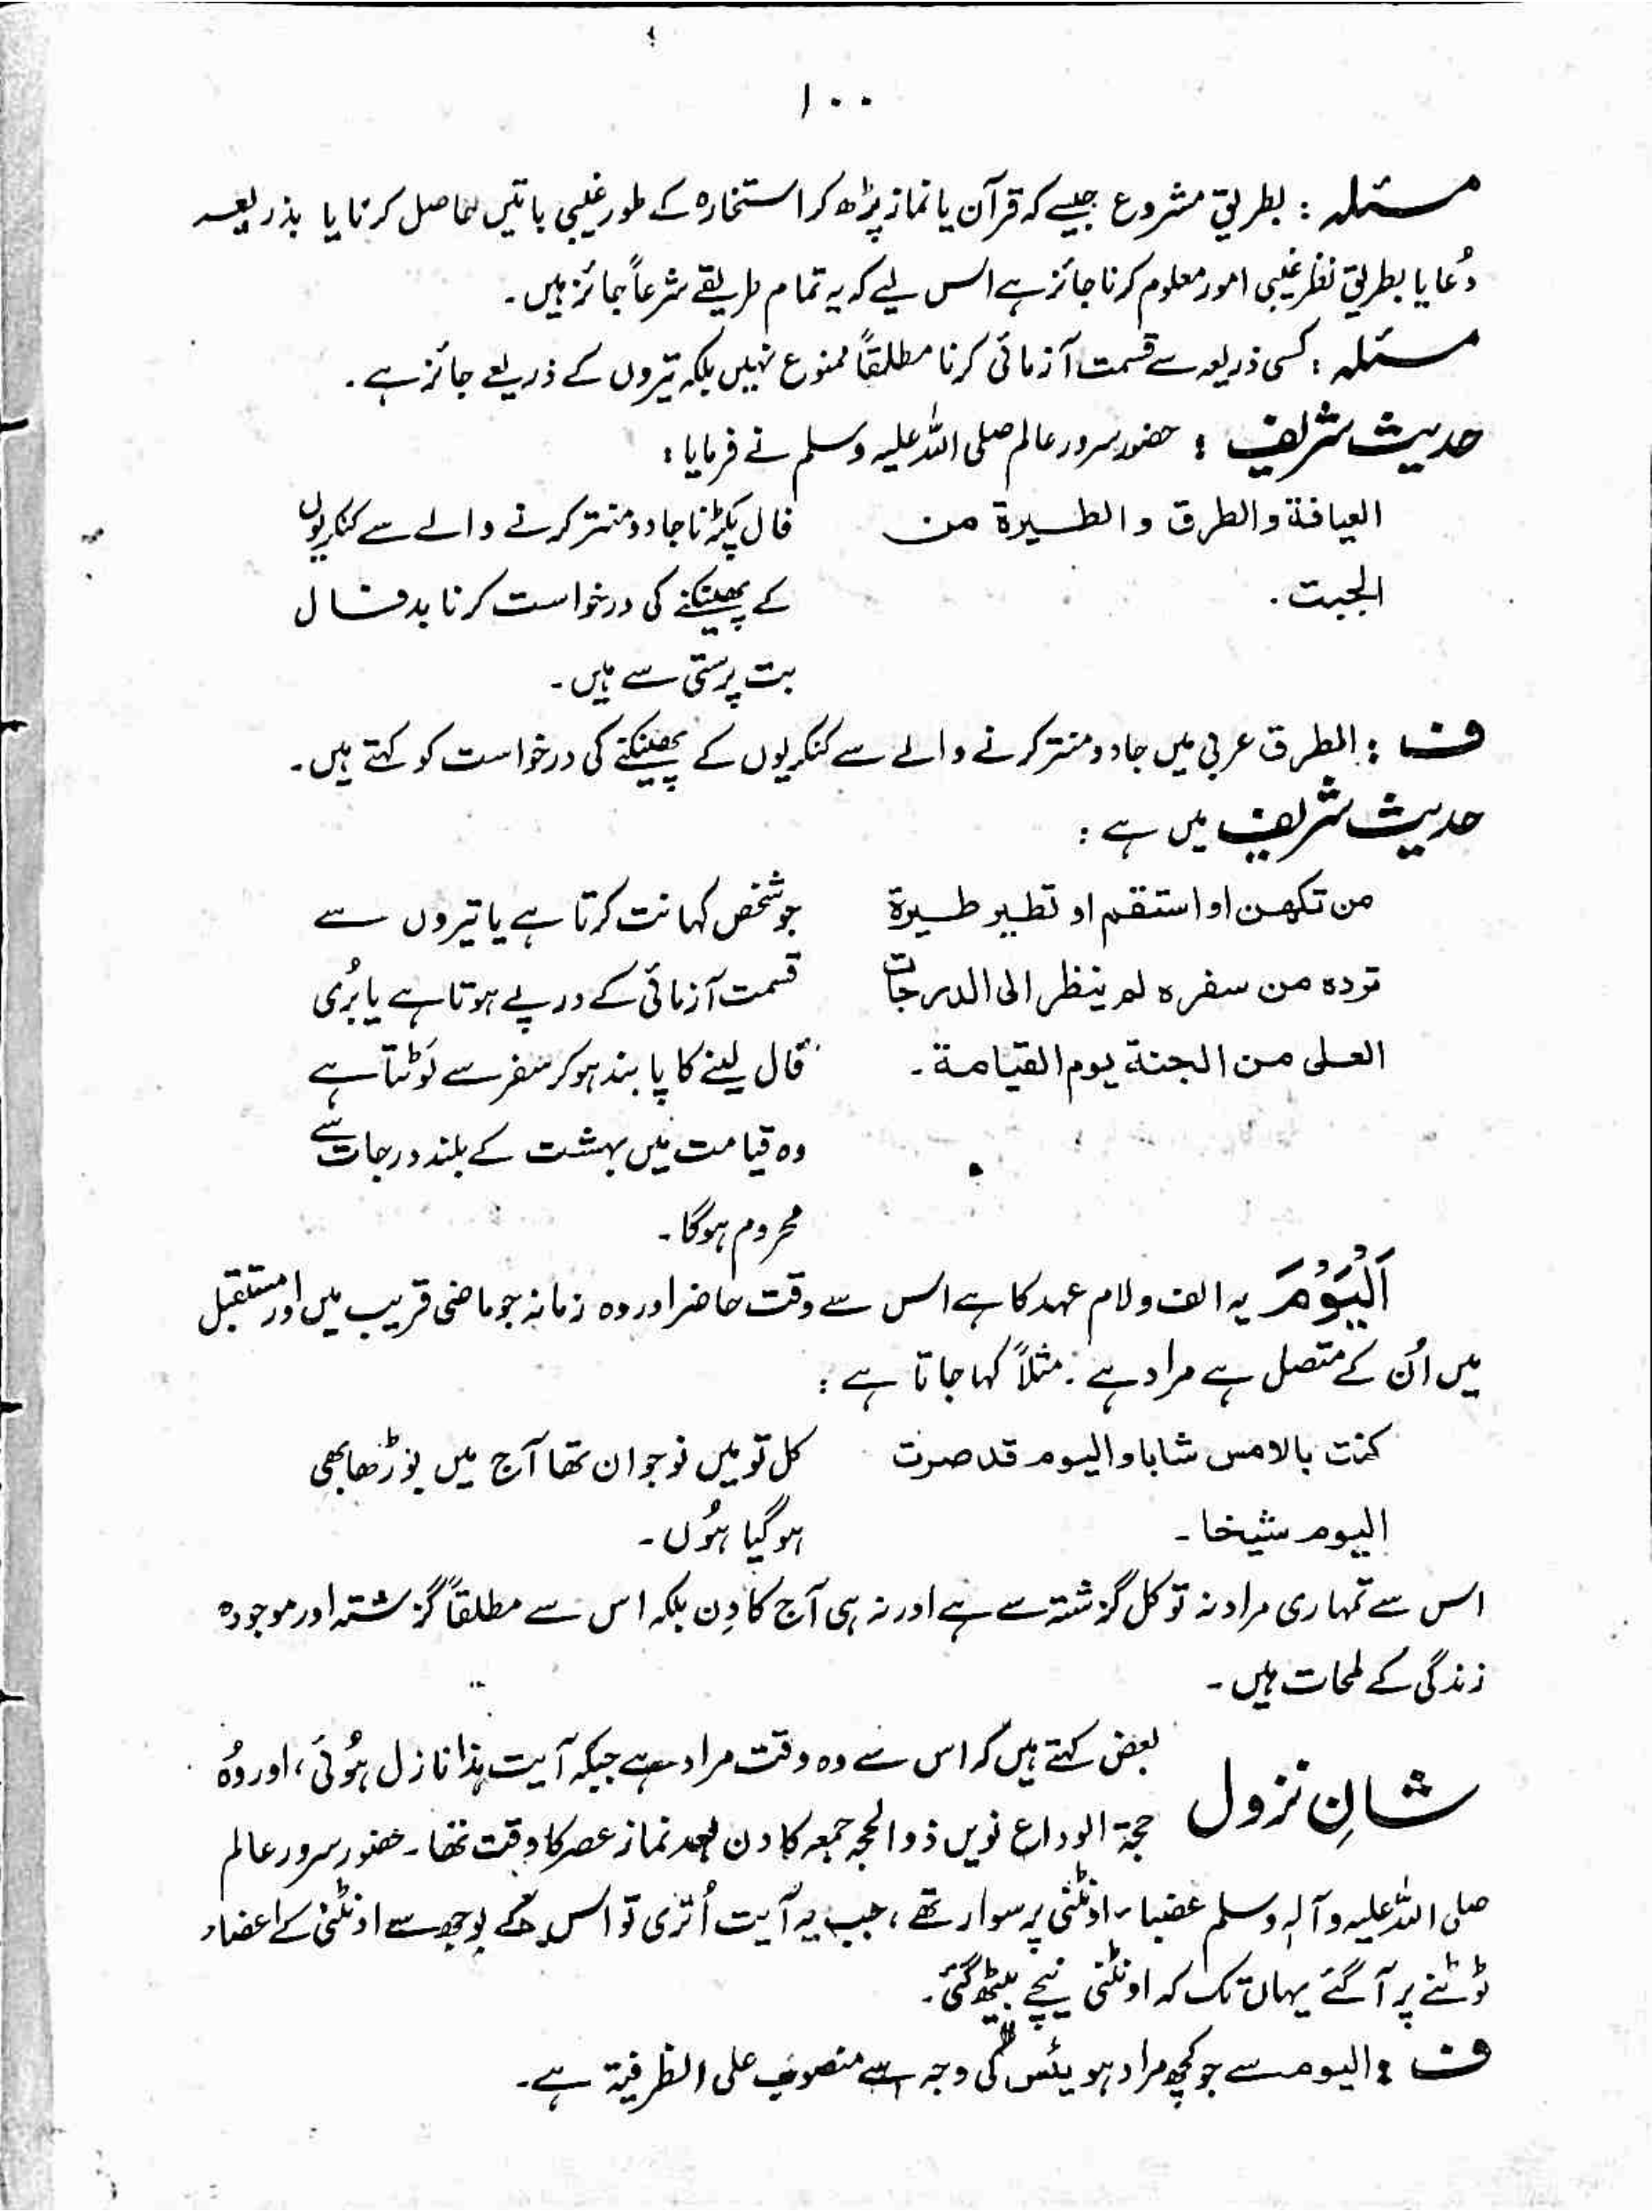 ۱۰۰
مسئلہ : بطریق مشروع جیسے کہ قرآن یا نماز پڑھ کر استخارہ کے طور غیبی باتیں حاصل کرنا یا بذریعہ
دُعا یا بطریق نظر غیبی امور معلوم کرنا جائز ہے اس لیے کہ یہ تمام طریقے شرعاً جائز ہیں۔
مسئلہ : کسی ذریعہ سے قسمت آزمائی کرنا مطلقاً ممنوع نہیں بلکہ تیروں کے ذریعے جائز ہے۔
حدیث شریف : حضور سرور عالم صلی اللہ علیہ وسلم نے فرمایا :
العیافة والطرق والطیرة من فال پکڑنا جادو منتر کرنے والے سے کنکریوں
الجبت۔ کے پھینکنے کی درخواست کرنا بدفال
بت پرستی سے ہیں۔
ف : الطرق عربی میں جادو منتر کرنے والے سے کنکریوں کے پھینکنے کی درخواست کو کہتے ہیں۔
حدیث شریف میں ہے :
من تکھن او استقسم او تطیر طیرة جو شخص کہانت کرتا ہے یا تیروں سے
تردہ من سفرہ لم ینظر الی الدرجات قسمت آزمائی کے درپے ہوتا ہے یا بُری
العلی من الجنة یوم القیامة۔ فال لینے کا پابند ہو کر سفر سے لوٹتا ہے
وہ قیامت میں بہشت کے بلند درجات سے
محروم ہوگا۔
اَلْیَوْمَ یہ الف ولام عہد کا ہے اس سے وقت حاضر اور وہ زمانہ جو ماضی قریب میں اور مستقبل
میں اُن کے متصل ہے مراد ہے۔ مثلاً کہا جاتا ہے :
کنت بالامس شابا والیوم قد صرت کل تو میں نوجوان تھا آج میں بوڑھا بھی
الیوم شیخا۔ ہو گیا ہُوں۔
اس سے تمہاری مراد نہ تو کل گزشتہ سے ہے اور نہ ہی آج کا دِن بلکہ اس سے مطلقاً گزشتہ اور موجودہ
زندگی کے لمحات ہیں۔
شانِ نزول بعض کہتے ہیں کہ اس سے وہ وقت مراد ہے جبکہ آیت ہذا نازل ہُوئی، اور وُہ
حجۃ الوداع نویں ذوالحجہ جمعہ کا دن بعد نماز عصر کا وقت تھا۔ حضور سرور عالم
صلی اللہ علیہ وآلہ وسلم عضباء اونٹنی پر سوار تھے، جب یہ آیت اُتری تو اس کے بوجھ سے اونٹنی کے اعضاء
ٹوٹنے پر آگئے یہاں تک کہ اونٹنی نیچے بیٹھ گئی۔
ف : الیوم سے جو کچھ مراد ہو یئس کی وجہ سے منصوب علی الظرفیة ہے۔